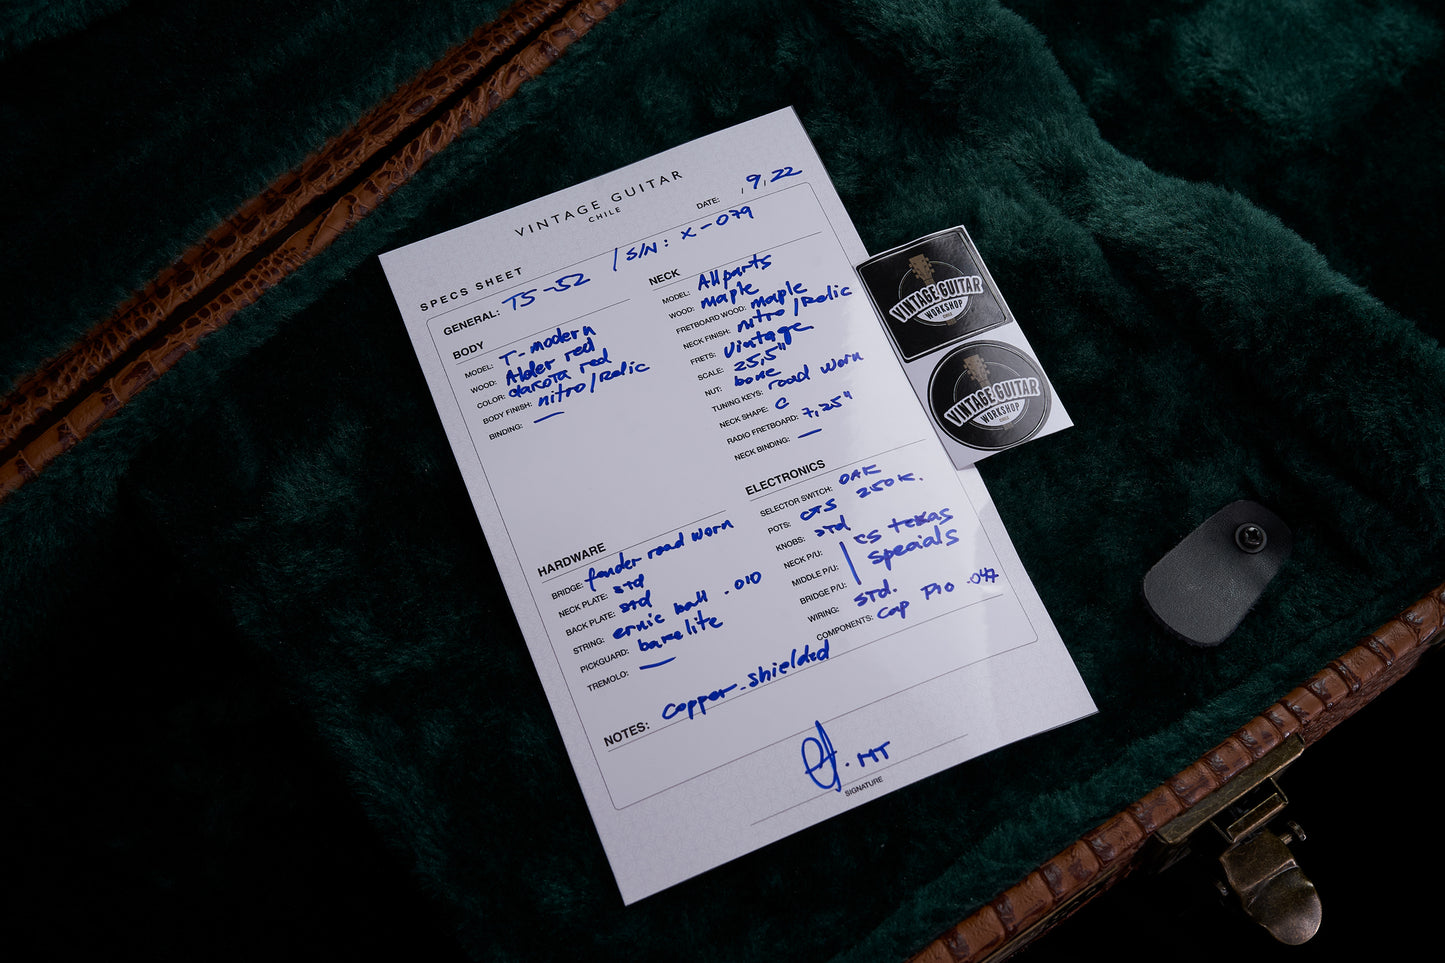 VINTAGE GUITAR
CHILE
DATE: , 9, 22
SPECS SHEET
GENERAL: TS-52 / S/N: X-079
BODY
MODEL: T-modern
WOOD: Alder red
COLOR: dakota red
BODY FINISH: nitro/Relic
BINDING: —
NECK
MODEL: Allparts
WOOD: maple
FRETBOARD WOOD: maple
NECK FINISH: nitro/Relic
FRETS: Vintage
SCALE: 25,5"
NUT: bone
TUNING KEYS: road worn
NECK SHAPE: C
RADIO FRETBOARD: 7,25"
NECK BINDING: —
HARDWARE
BRIDGE: fender road worn
NECK PLATE: std
BACK PLATE: std
STRING: ernie ball .010
PICKGUARD: bakelite
TREMOLO: —
ELECTRONICS
SELECTOR SWITCH: OAK
POTS: CTS 250K.
KNOBS: std
NECK P/U: CS texas
MIDDLE P/U: specials
BRIDGE P/U:
WIRING: STD.
COMPONENTS: Cap PIO .047
NOTES: Copper-shielded
MT
SIGNATURE
VINTAGE GUITAR
WORKSHOP
CHILE
VINTAGE GUITAR
WORKSHOP
CHILE